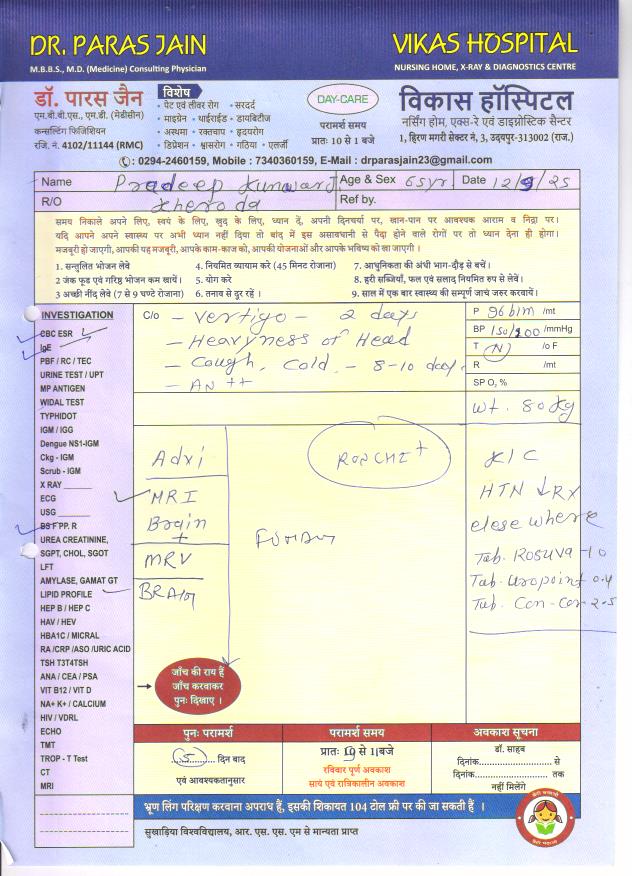 DR. PARAS JAIN
M.B.B.S., M.D. (Medicine) Consulting Physician
VIKAS HOSPITAL
NURSING HOME, X-RAY & DIAGNOSTICS CENTRE
डॉ. पारस जैन
एम.बी.बी.एस., एम.डी. (मेडीसीन)
कन्सल्टिंग फिजिशियन
रजि. नं. 4102/11144 (RMC)
विशेष
• पेट एवं लीवर रोग • सरदर्द
• माइग्रेन • थाईराईड • डायबिटीज
• अस्थमा • रक्तचाप • हृदयरोग
• डिप्रेशन • श्वासरोग • गठिया • एलर्जी
DAY-CARE
परामर्श समय
प्रातः 10 से 1 बजे
विकास हॉस्पिटल
नर्सिंग होम, एक्स-रे एवं डाइग्नोस्टिक सैन्टर
1, हिरण मगरी सेक्टर नं, 3, उदयपुर-313002 (राज.)
: 0294-2460159, Mobile : 7340360159, E-Mail : drparasjain23@gmail.com
Name Pradeep Kunwar Age & Sex 65yr Date 12/9/25
R/O Kheroda Ref by.
समय निकाले अपने लिए, स्वयं के लिए, खुद के लिए, ध्यान दें, अपनी दिनचर्या पर, खान-पान पर आवश्यक आराम व निद्रा पर।
यदि आपने अपने स्वास्थ्य पर अभी ध्यान नहीं दिया तो बाद में इस असावधानी से पैदा होने वाले रोगों पर तो ध्यान देना ही होगा।
मजबूरी हो जाएगी, आपकी यह मजबूरी, आपके काम-काज को, आपकी योजनाओं और आपके भविष्य को खा जाएगी।
1. सन्तुलित भोजन लेवे
2 जंक फूड एवं गरिष्ठ भोजन कम खायें।
3 अच्छी नींद लेवे (7 से 9 घण्टे रोजाना)
4. नियमित व्यायाम करे (45 मिनट रोजाना)
5. योग करे
6. तनाव से दुर रहें ।
7. आधुनिकता की अंधी भाग-दौड़ से बचें।
8. हरी सब्जियाँ, फल एवं सलाद नियमित रुप से लेवें।
9. साल में एक बार स्वास्थ्य की सम्पूर्ण जाचं जरुर करवायें।
INVESTIGATION
CBC ESR
IgE
PBF / RC / TEC
URINE TEST / UPT
MP ANTIGEN
WIDAL TEST
TYPHIDOT
IGM / IGG
Dengue NS1-IGM
Ckg - IGM
Scrub - IGM
X RAY
ECG
USG
BS F PP. R
UREA CREATININE,
SGPT, CHOL, SGOT
LFT
AMYLASE, GAMAT GT
LIPID PROFILE
HEP B / HEP C
HAV / HEV
HBA1C / MICRAL
RA /CRP /ASO /URIC ACID
TSH T3T4TSH
ANA / CEA / PSA
VIT B12 / VIT D
NA+ K+ / CALCIUM
HIV / VDRL
ECHO
TMT
TROP - T Test
CT
MRI
C/o - Vertigo - 2 days
- Heavyness of Head
- Cough, Cold - 8-10 day.
- AN ++
P 96 b/m /mt
BP 150/100 /mmHg
T (N) /o F
R /mt
SP O, %
wt. 80 Kg
Advi
MRI
Brain
+
MRV
BRAIN
RONCHI +
K/C
HTN ↓ RX
elese where
Tab. ROSUVA -10
Tab. Uropoint 0.4
Tab. Con-Cor 2.5
जाँच की राय हैं
जाँच करवाकर
पुनः दिखाए ।
पुनः परामर्श
(5) दिन बाद
एवं आवश्यकतानुसार
परामर्श समय
प्रातः 10 से 1 बजे
रविवार पूर्ण अवकाश
सायं एवं रात्रिकालीन अवकाश
अवकाश सूचना
डॉ. साहब
दिनांक................... से
दिनांक................... तक
नहीं मिलेंगे
भ्रूण लिंग परिक्षण करवाना अपराध हैं, इसकी शिकायत 104 टोल फ्री पर की जा सकती हैं ।
सुखाड़िया विश्वविद्यालय, आर. एस. एस. एम से मान्यता प्राप्त